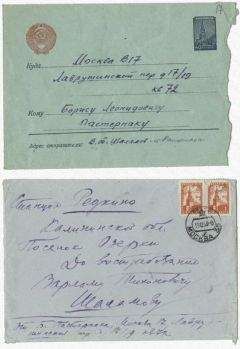 Куда Москва В 17
Лаврушинский пер д 17/19
кв 72
Кому Борису Леонидовичу
Пастернаку
Адрес отправителя: В. Т. Шаламов
Станция Редкино
Калининской обл.
Поселок Озерки
До востребования
Варламу Тихоновичу
Шаламову
МОСКВА
Б. Пастернак, Москва В 17 Лавру-